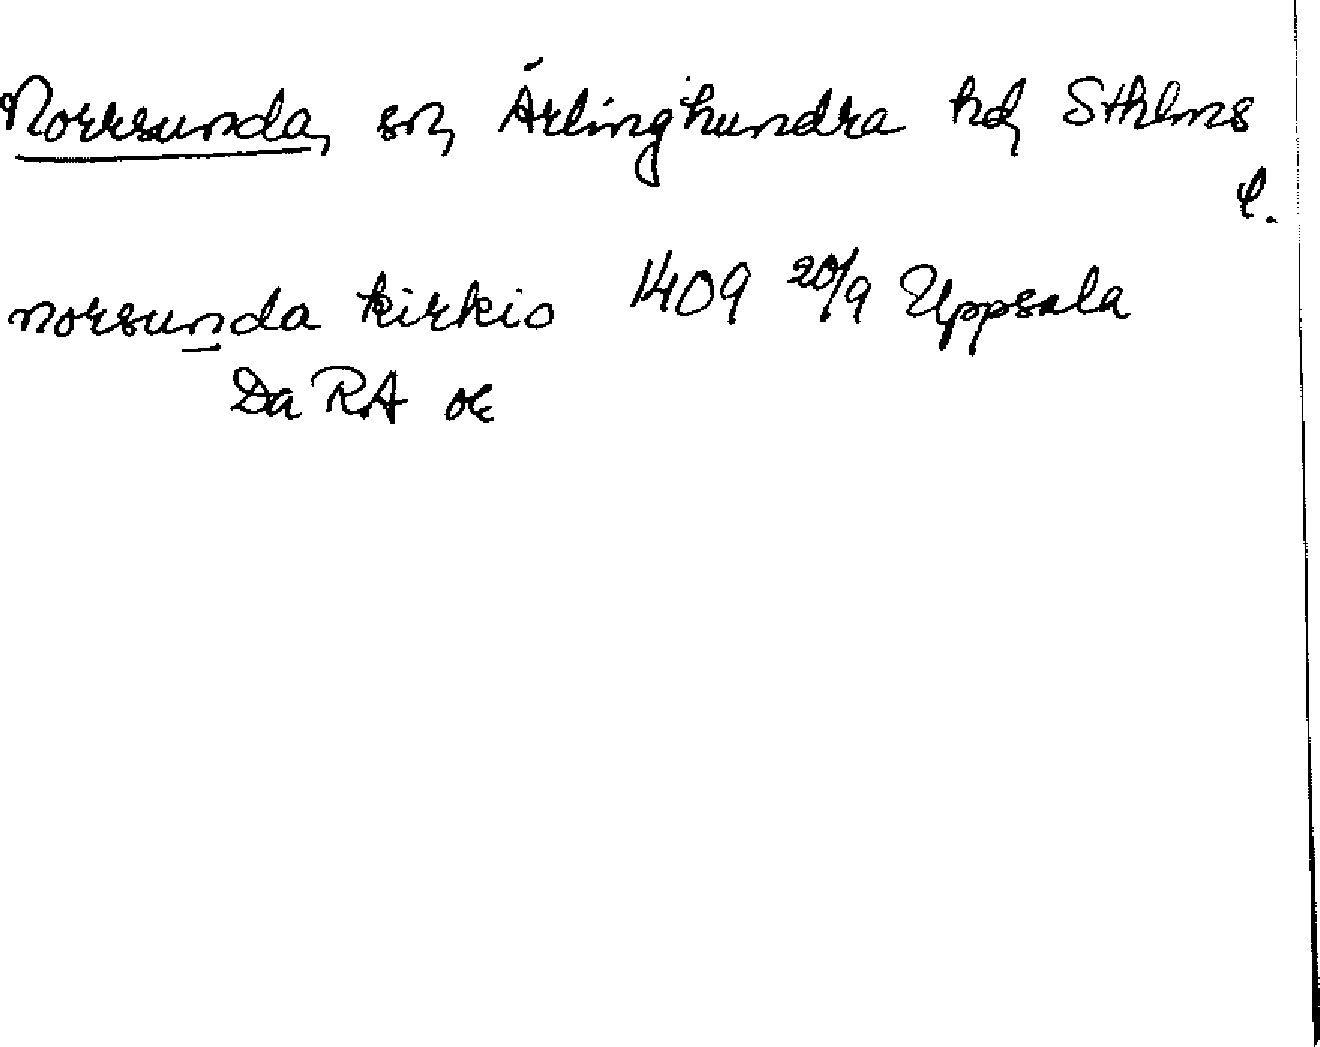 Norrsunda, sn, Ärlinghundra hd, Sthlms
l.
norsunda kirkio 1409 20/9 Uppsala
Da RA or